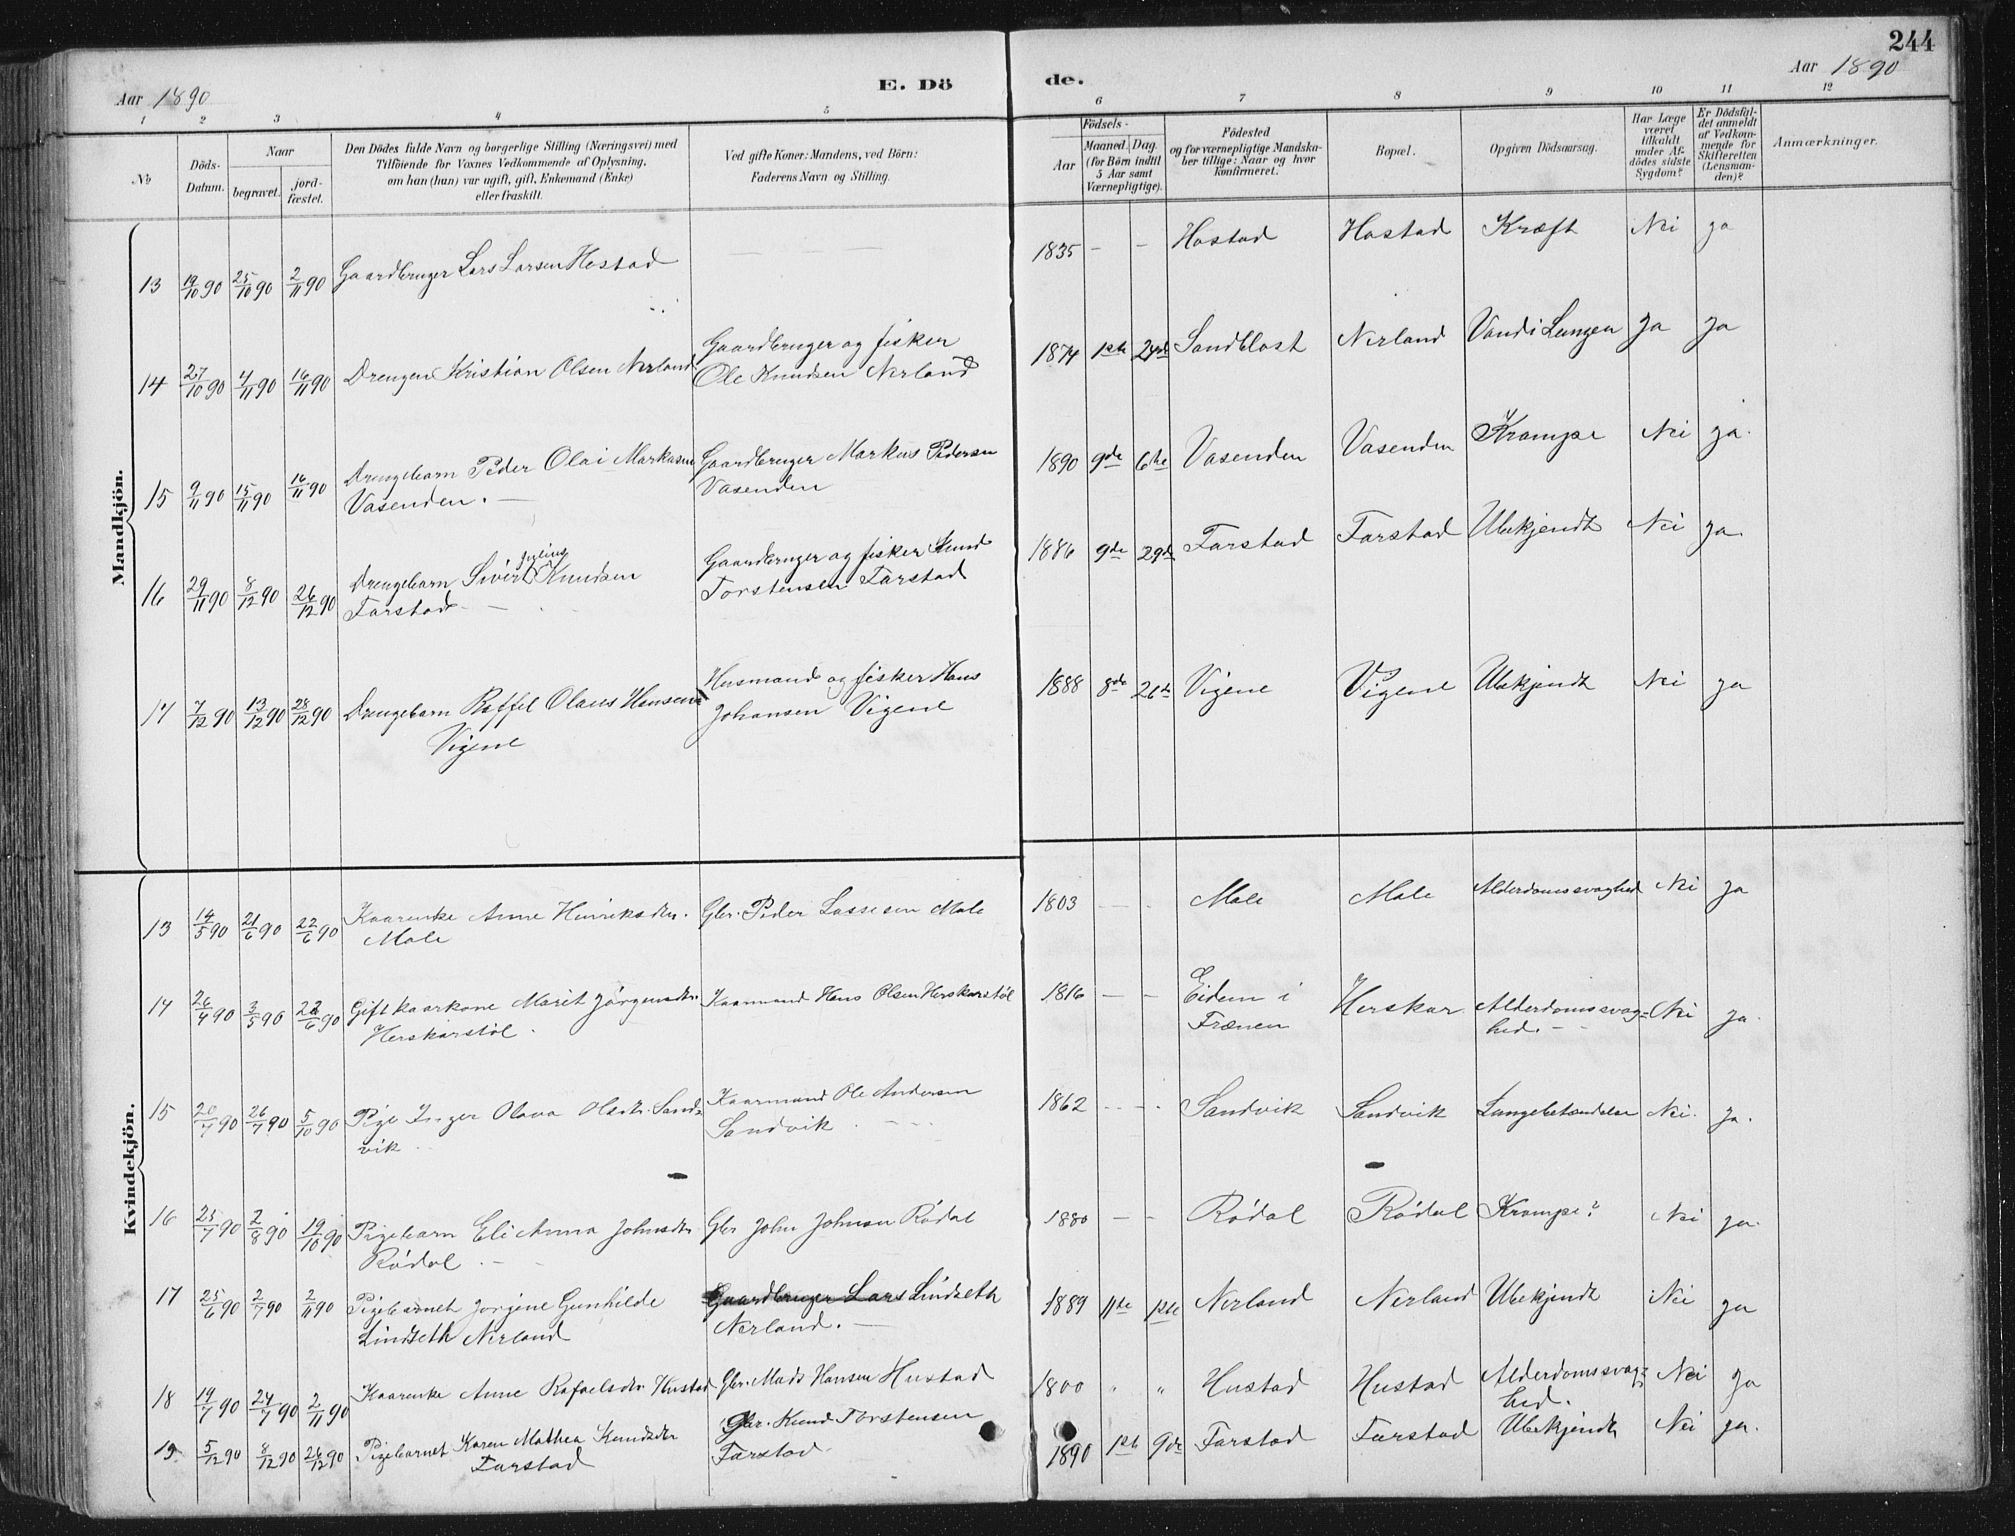 244
Aar 1890
E. Dö de.
Aar 1890
1 2 3 4 5 6 7 8 9 10 11 12
No
Döds-Datum.
Naar
begravet.
jord-fæstet.
Den Dödes fulde Navn og borgerlige Stilling (Næringsvei) med
Tilföiende for Voxnes Vedkommende af Oplysning,
om han (hun) var ugift, gift, Enkemand (Enke)
eller fraskilt.
Ved gifte Koner: Mandens, ved Börn:
Faderens Navn og Stilling.
Födsels-
Aar
Maaned. Dag.
(for Börn indtil
5 Aar samt
Værnepligtige).
Födested
og for værnepligtige Mandska-
ber tillige: Naar og hvor
konfirmeret.
Bopæl.
Opgiven Dödsaarsag.
Har Læge
været
tilkaldt
under Af-
dödes sidste
Sygdom?
Er Dödsfal-
det anmeldt
af Vedkom-
mende for
Skifteretten
(Lensman-
den)?
Anmærkninger.
Mandkjön.
13 19/10 90 25/10 90 2/11 90 Gaardbruger Lars Larsen Hostad — 1835 - - Hostad Hostad Kræft Nei ja
14 27/10 90 4/11 90 16/11 90 Drengen Kristian Olsen Nerland Gaardbruger og fisker
Ole Knudsen Nerland 1874 1ste 24de Sandblost Nerland Vand i Lungen ja ja
15 9/11 90 15/11 90 16/11 90 Drengebarn Peder Olai Markusen
Vasenden. — Gaardbruger Markus Pedersen
Vasenden 1890 9de 6te Vasenden Vasenden Krampe Nei ja.
16 29/11 90 8/12 90 26/12 90 Drengebarn Sivert Knudsen
Farstad — Gaardbruger og fisker Knud
Torstensen Farstad 1886 9de 29de Farstad Farstad Ubekjendt Nei ja
17 7/12 90 13/12 90 28/12 90 Drengebarn Raffel Olaus Hansen
Vigene Husmand og fisker Hans
Johansen Vigene 1888 8de 26de Vigene Vigene Ubekjendt Nei ja
Kvindekjön.
13 14/5 90 21/6 90 22/6 90 Kaarenke Anne Henriksdtr.
Male Gbr. Peder Lassesen Male 1803 - - Male Male Alderdomssvaghed Nei ja
14 26/4 90 3/5 90 22/6 90 Gift kaarkone Marit Jörgensdtr.
Herskarstöl. Kaarmand Hans Olsen Herskarstöl 1816 - - Eidem i
Frænen Herskar Alderdomssvag=
hed. - Nei ja.
15 20/7 90 26/7 90 5/10 90 Pige Inger Olava Olsdtr. Sand=
vik Kaarmand Ole Andersen
Sandvik 1862 - - Sandvik Sandvik Lungebetændelse Nei. ja.
16 23/7 90 2/8 90 19/10 90 Pigebarn Eli Anna Johnsdtr.
Rödal. — Gbr John Johnsen Rödal 1880 - - Rödal Rödal Krampe? Nei ja.
17 25/6 90 2/7 90 2/11 90 Pigebarnet Jorgine Gunhilde
Lindseth Nerland Gaardbruger Lars Lindseth
Nerland. — 1889 11te 1ste Nerland Nerland Ubekjendt Nei ja
18 19/7 90 24/7 90 2/11 90 Kaarenke Anne Rafaelsdtr. Hustad Gbr. Mads Hansen Hustad 1800 " " Hustad Hustad Alderdomssvag=
hed. Nei ja
19 5/12 90 8/12 90 26/12 90 Pigebarnet Karen Mathea Knudsdtr
Farstad Gbr. Knud Torstensen
Farstad 1890 1ste 9de Farstad Farstad Ubekjendt Nei ja.